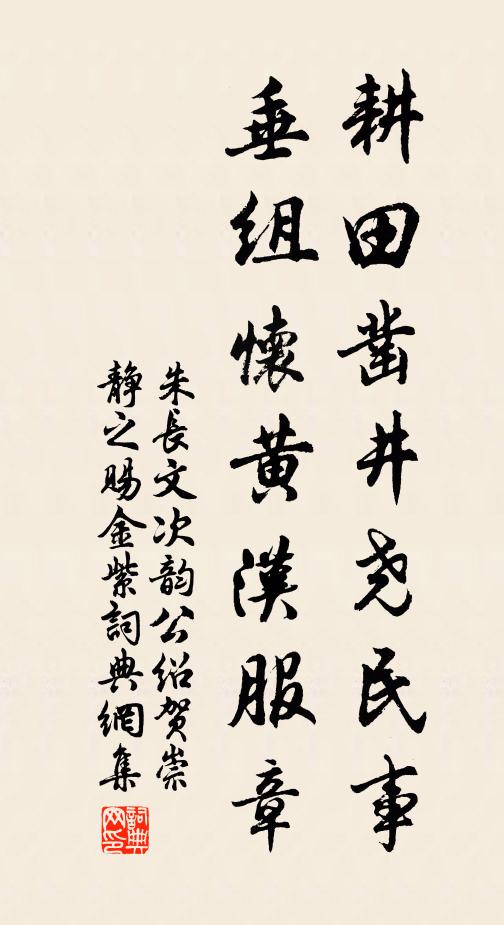 耕田凿井尧民事
垂组懷黄漢服章
朱長文次韵公绍贺崇
静之賜金紫詞典網集
詞典网印